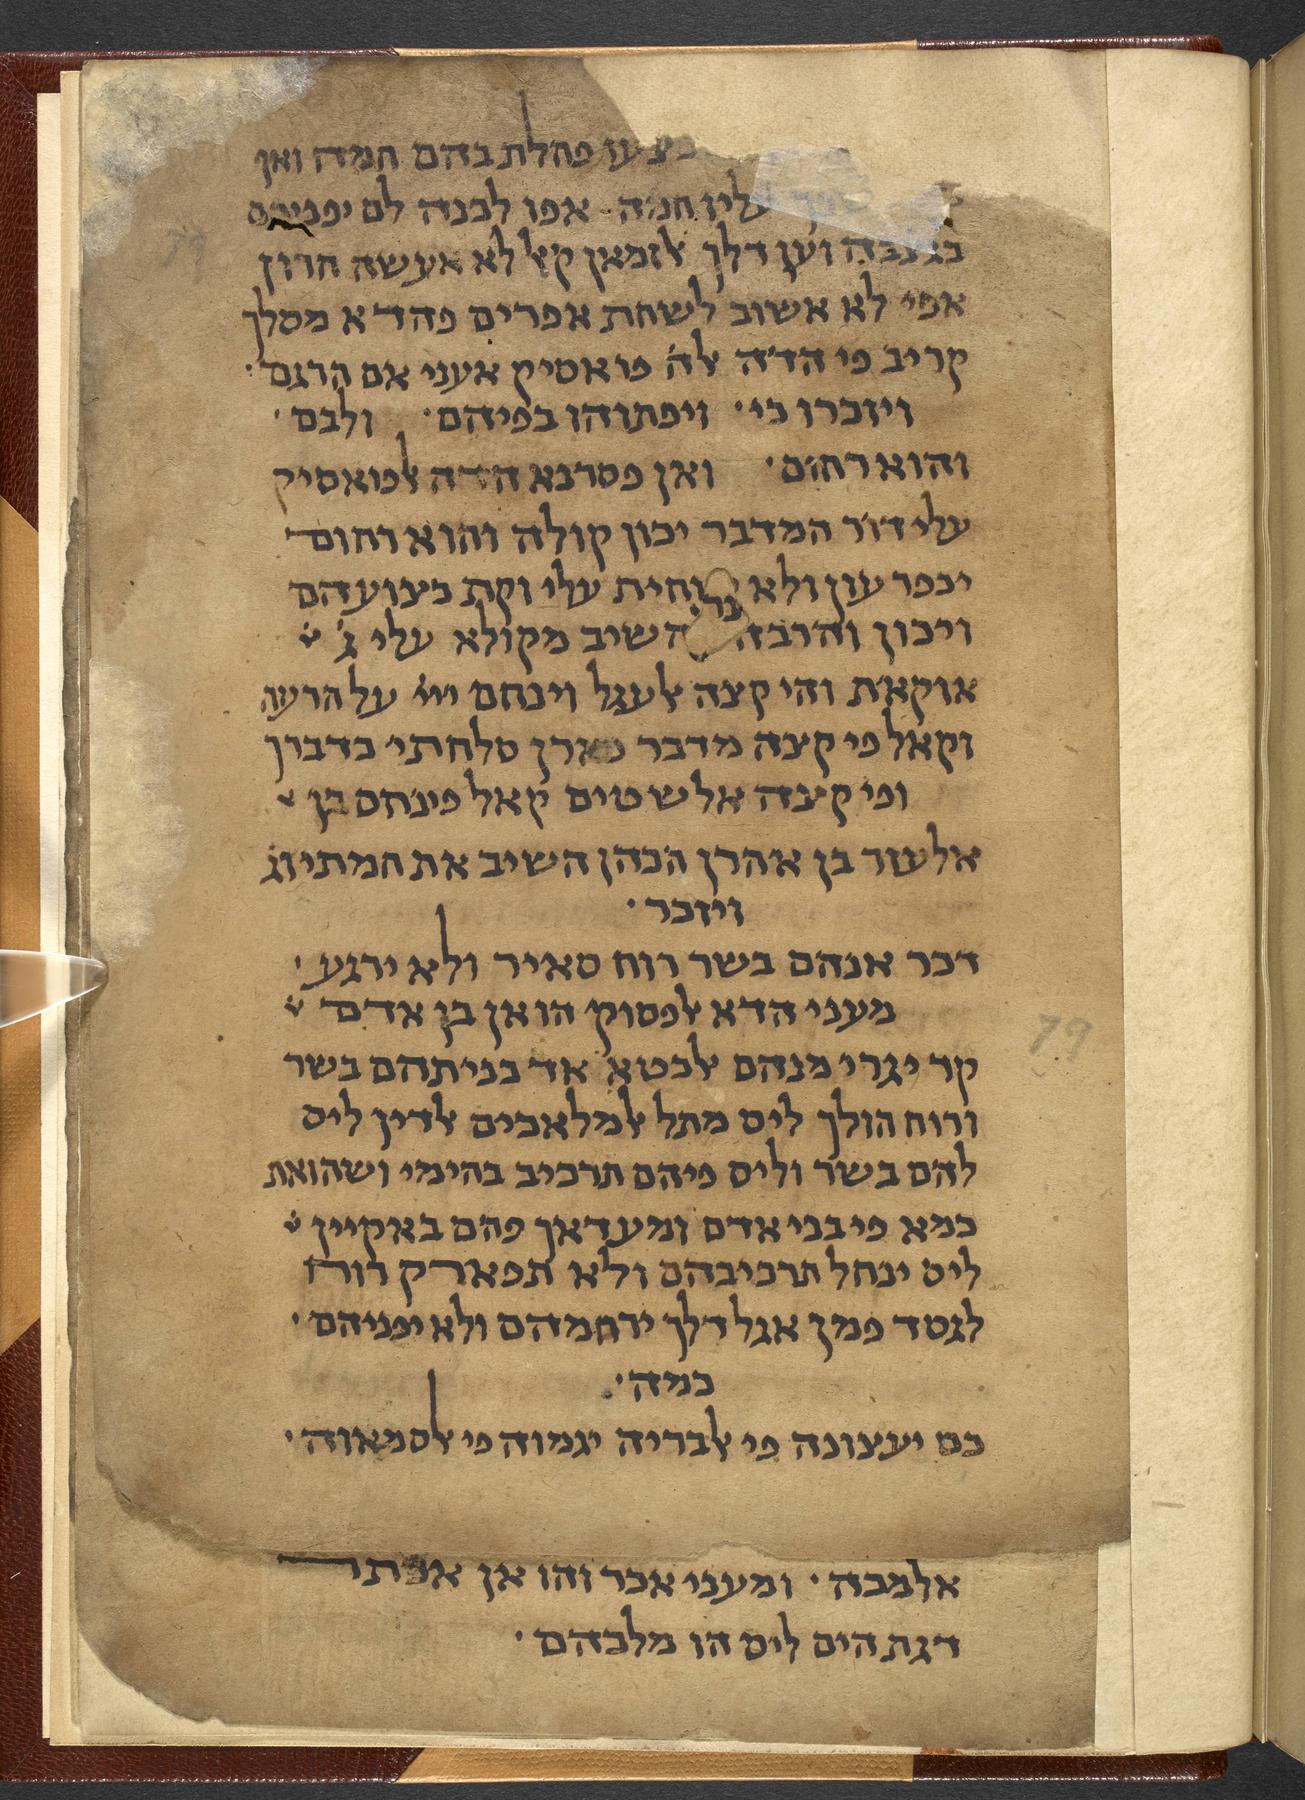 פחלת בהם חמה ואן
עליו חמה אפו לכנה לם יפניהם
וען דלך אלזמאן קאל לא אעשה חרון
אפי לא אשוב לשחת אפרים פהדא מסלך
קריב פי הדה אלה פואסיק אעני אם הרגם·
ויזכרו כי· ויפתוהו בפיהם· ולבם·
והוא רחום· ואן פסרנא הדה אלפואסיק
עלי דור המדבר יכון קולה והוא רחום
יכפר עון ולא ישחית עלי וקת
ויכון והרבה להשיב מקולא עלי ג׳
אוקאת והי קצה אלעגל וינחם ייי על הרעה
וקאל פי קצה מדבר פארן סלחתי כדברך
ופי קצה אל שטים קאל פינחס בן
אלעזר בן אהרן הכהן השיב את חמתי וג
ויזכר·
דכר אנהם בשר רוח סאיר ולא ירגע·
מעני הדא אלפסוק הו אן בן אדם
קד יגרי מנהם אלכטא אד בניתהם בשר
ורוח הולך ליס מתל אלמלאכים אלדין ליס
להם בשר וליס פיהם תרכיב בהימי ושהואת
כמא פי בני אדם ומע דאך פהם באקיין
ליס ינחל תרכיבהם ולא תפארק רוח
לגסד פמן אגל דלך ירחמהם ולא יפניהם·
כמה·
כם יעצונה פי אלבריה יגמוה פי אלסמאוה·
אלמבה· ומעני אכר והו אן אכתר
דגת הים ליס הו מלבהם·